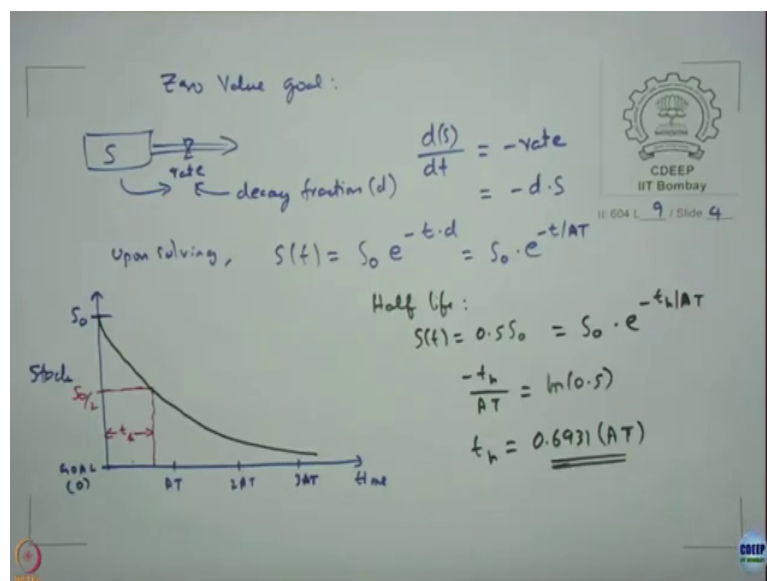 Zero Value goal:
S
rate
decay fraction (d)
d(s)/dt = -rate
= -d.S
CDEEP
IIT Bombay
IE 604 L 9 / Slide 4
Upon solving, S(t) = S₀ e^(-t.d) = S₀ . e^(-t/AT)
Half life:
S(t) = 0.5 S₀ = S₀ . e^(-tₕ/AT)
-tₕ/AT = ln(0.5)
tₕ = 0.6931 (AT)
S₀
Stock
S₀/2
tₕ
GOAL
(0)
AT
2AT
3AT
time
CDEEP